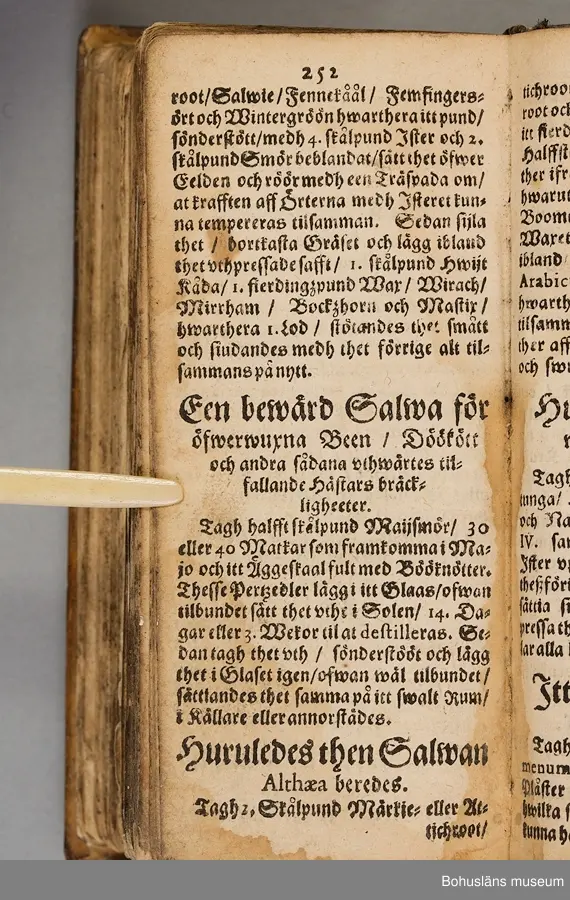 252
root/Salwie/Fennekåål/ Femfingers-
ört och Wintergröön hwarthera itt pund/
sönderstött/medh 4. skålpund Ister och 2.
skålpund Smör beblandat/sätt thet öfwer
Eelden och röör medh een Träspada om/
at krafften aff Örterna medh Isteret kun-
na tempereras tilsamman. Sedan sijla
thet / bortkasta Gräset och lägg ibland
thet vthpressade safft/ 1. skålpund Hwijt
Kåda/ 1. fierdingzpund Wax/ Wirach/
Mirrham / Bockzhorn och Mastix/
hwarthera 1. Lod/ stötandes thet smått
och siudandes medh thet förrige alt til-
sammans på nytt.
Een bewärd Salwa för
öfwerwuxna Been / Döökött
och andra sådana vthwärtes til-
fallande Hästars bräck-
ligheeter.
Tagh halfft skålpund Maijsmör/ 30
eller 40 Matkar som framkomma i Ma-
jo och itt Äggeskaal fult med Bööknötter.
Thesse Pertzedler lägg i itt Glaas/ofwan
tilbundet sätt thet vthe i Solen/ 14. Da-
gar eller 3. Wekor til at destilleras. Se-
dan tagh thet vth / sönderstööt och lägg
thet i Glaset igen/ofwan wäl tilbundet/
sättiandes thet samma på itt swalt Rum/
i Källare eller annorstädes.
Huruledes then Salwan
Althæa beredes.
Tagh 2. Skålpund Märkie- eller At-
tichroot/
tichroot
root och
itt fierd
Halffst
ther ifr
hwarut
Boom
Waxet
ibland
Arabic
hwarth
tilsamm
ther aff
och sw
Hu
Tagh
tunga/
och Na
IV. sam
Ister v
theßföri
sättia s
pressa th
lar alla
Itt
Tagh
menum
Plåster
hwilka s
kunna h
Bohusläns museum